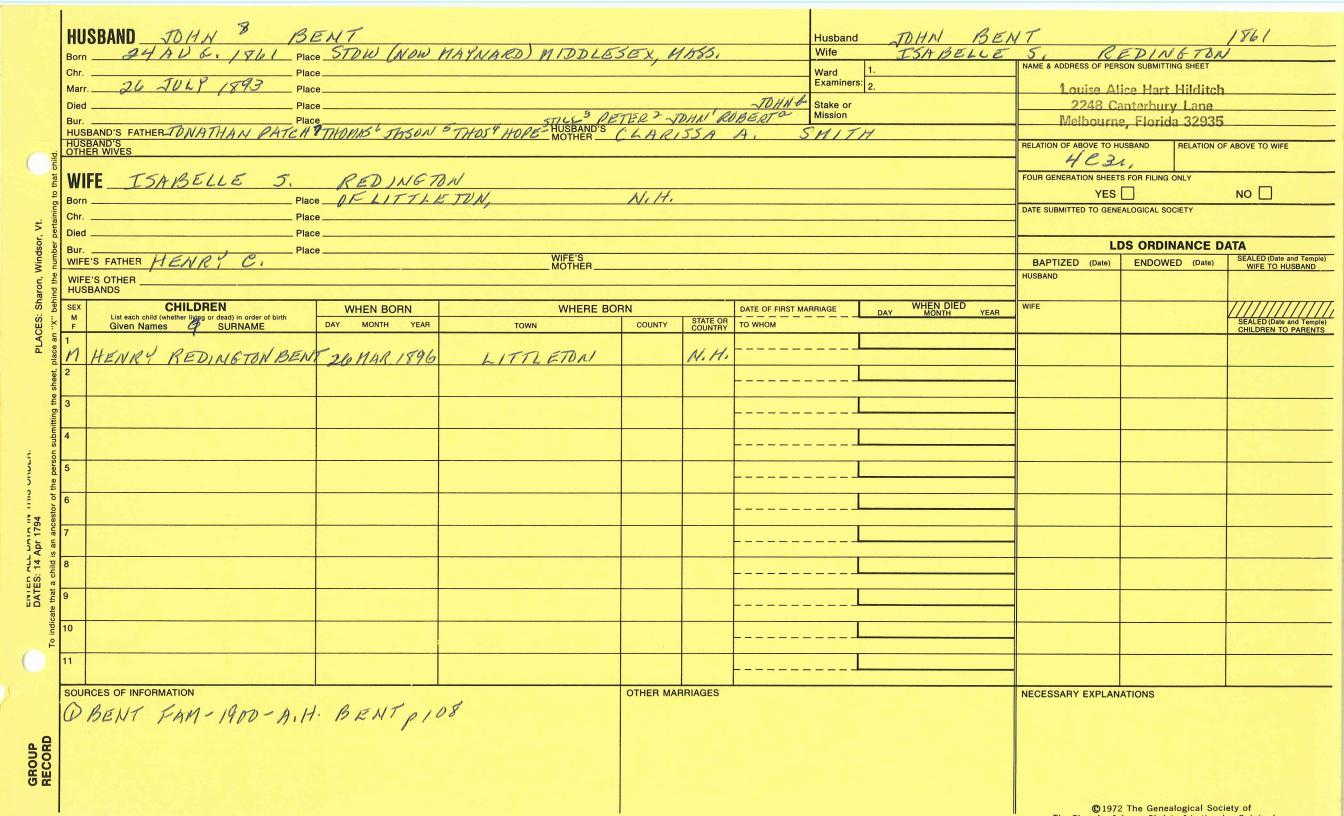 HUSBAND JOHN 8 BENT
Born 24 AUG. 1861 Place STOW (NOW MAYNARD) MIDDLESEX, MASS.
Chr. Place
Marr. 26 JULY 1893 Place
Died Place JOHN
Bur. Place PETER JOHN ROBERT
HUSBAND'S FATHER JONATHAN PATCH 7 THOMAS 6 JASON 5 THOS 4 HOPE HUSBAND'S MOTHER CLARISSA A. SMITH
HUSBAND'S OTHER WIVES
WIFE ISABELLE S. REDINGTON
Born Place OF LITTLETON, N.H.
Chr. Place
Died Place
Bur. Place
WIFE'S FATHER HENRY C. WIFE'S MOTHER
WIFE'S OTHER HUSBANDS
Husband JOHN BENT 1861
Wife ISABELLE S. REDINGTON
Ward Examiners: 1.
2.
Stake or Mission
NAME & ADDRESS OF PERSON SUBMITTING SHEET
Louise Alice Hart Hilditch
2248 Canterbury Lane
Melbourne, Florida 32935
RELATION OF ABOVE TO HUSBAND RELATION OF ABOVE TO WIFE
4C3r.
FOUR GENERATION SHEETS FOR FILING ONLY
YES NO
DATE SUBMITTED TO GENEALOGICAL SOCIETY
LDS ORDINANCE DATA
BAPTIZED (Date) ENDOWED (Date) SEALED (Date and Temple) WIFE TO HUSBAND
HUSBAND
WIFE
SEALED (Date and Temple) CHILDREN TO PARENTS
SEX M F
CHILDREN
List each child (whether living or dead) in order of birth
Given Names 9 SURNAME
WHEN BORN
DAY MONTH YEAR
WHERE BORN
TOWN COUNTY STATE OR COUNTRY
DATE OF FIRST MARRIAGE
TO WHOM
WHEN DIED
DAY MONTH YEAR
1
M HENRY REDINGTON BENT 26 MAR 1896 LITTLETON N.H.
2
3
4
5
6
7
8
9
10
11
SOURCES OF INFORMATION
① BENT FAM-1900-A.H. BENT p108
OTHER MARRIAGES
NECESSARY EXPLANATIONS
©1972 The Genealogical Society of
PLACES: Sharon, Windsor, Vt.
ENTER ALL DATA IN THIS ORDER:
DATES: 14 Apr 1794
To indicate that a child is an ancestor of the person submitting the sheet, place an "X" behind the number pertaining to that child.
GROUP
RECORD